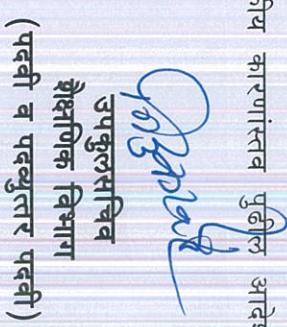 कारणांस्तव पुढील आदेश
उपकुलसचिव
शैक्षणिक विभाग
(पदवी व पदव्युत्तर पदवी)